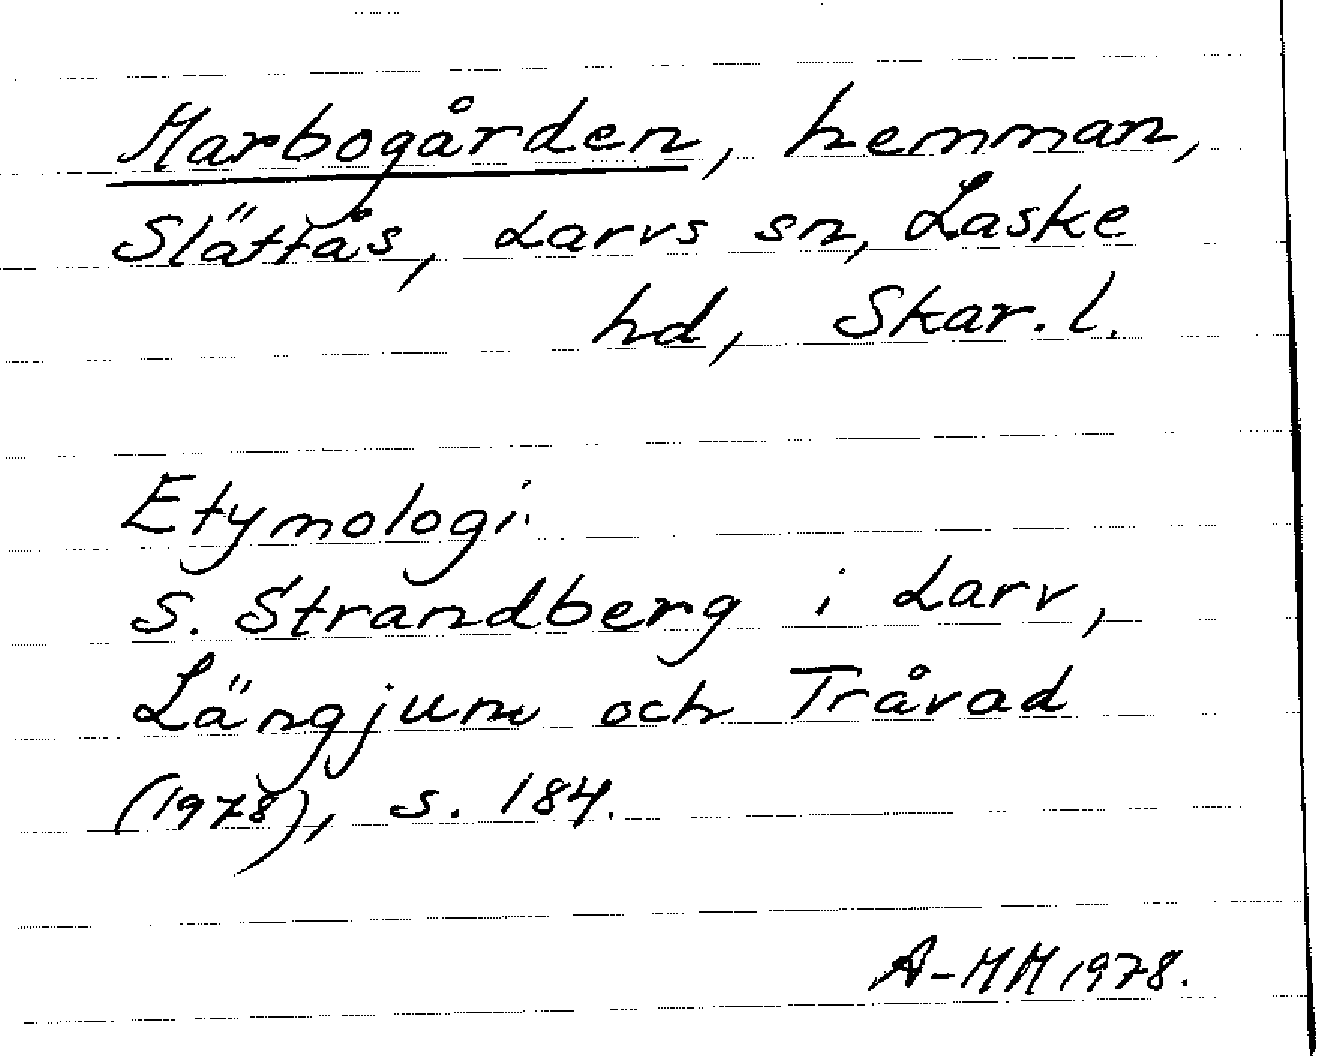 Marbogården, hemman,
Slättås, Larvs sn, Laske
hd, Skar. l.
Etymologi.
S. Strandberg i Larv,
Längjum och Tråvad
(1978), s. 184.
A-MM 1978.